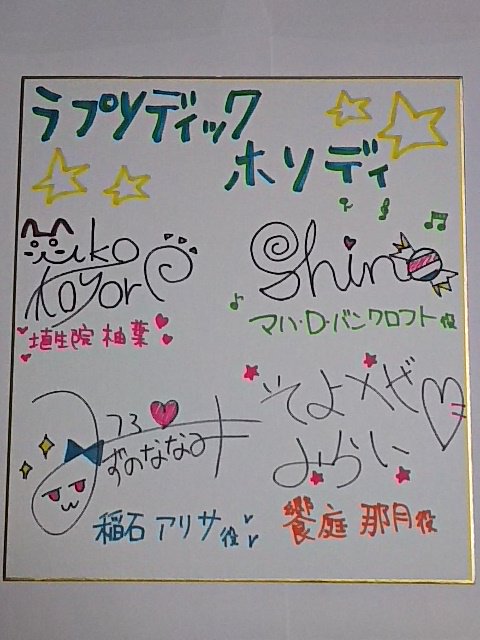 ラプソディック
ホリデイ
Niko
Koyori
埴生院 柚葉
Shino
マハ・D・バンクロフト役
73
ずのななみ
稲石 アリサ役
そよかぜ
みらい
饗庭 那月役